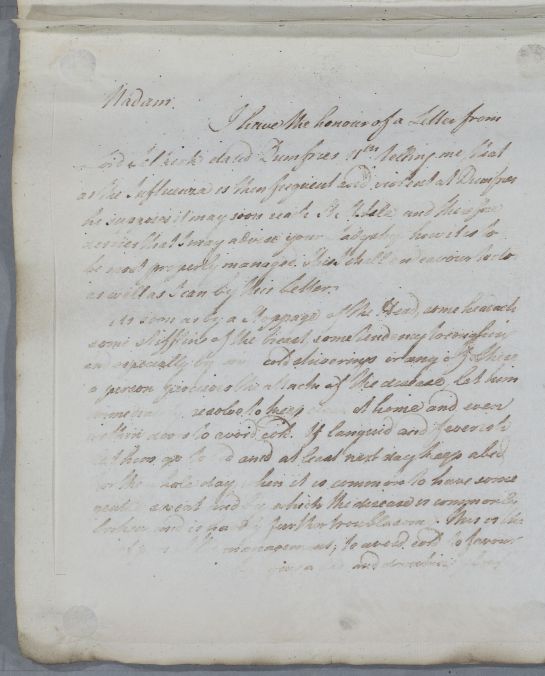 Madam.
I have the honour of a Letter from
Lord Selkirk dated Dumfries 11th telling me that
as the Influenza is then frequent and violent at Dumfries
he supposes it may soon reach St. Mary's Isle and therefore
desires that I may advise your Ladyship how it is to
be most properly managed. This I shall endeavour to do
as well as I can by this letter.
As soon as by a Stoppage of the Head, some headach
some stiffling of the breast some tendency to coughing
and especially by any cold shiverings or any of these
a person perceives the attack of the disease, let him
immediately resolve to keep at home and even
within doors to avoid cold. If languid and feverish
let them go to bed and at least next day keep abed
for the whole day when it is common to have some
gentle sweat and by which the disease is commonly
broken and is further troublesome. This is the
management; to avoid cold to favour
a and